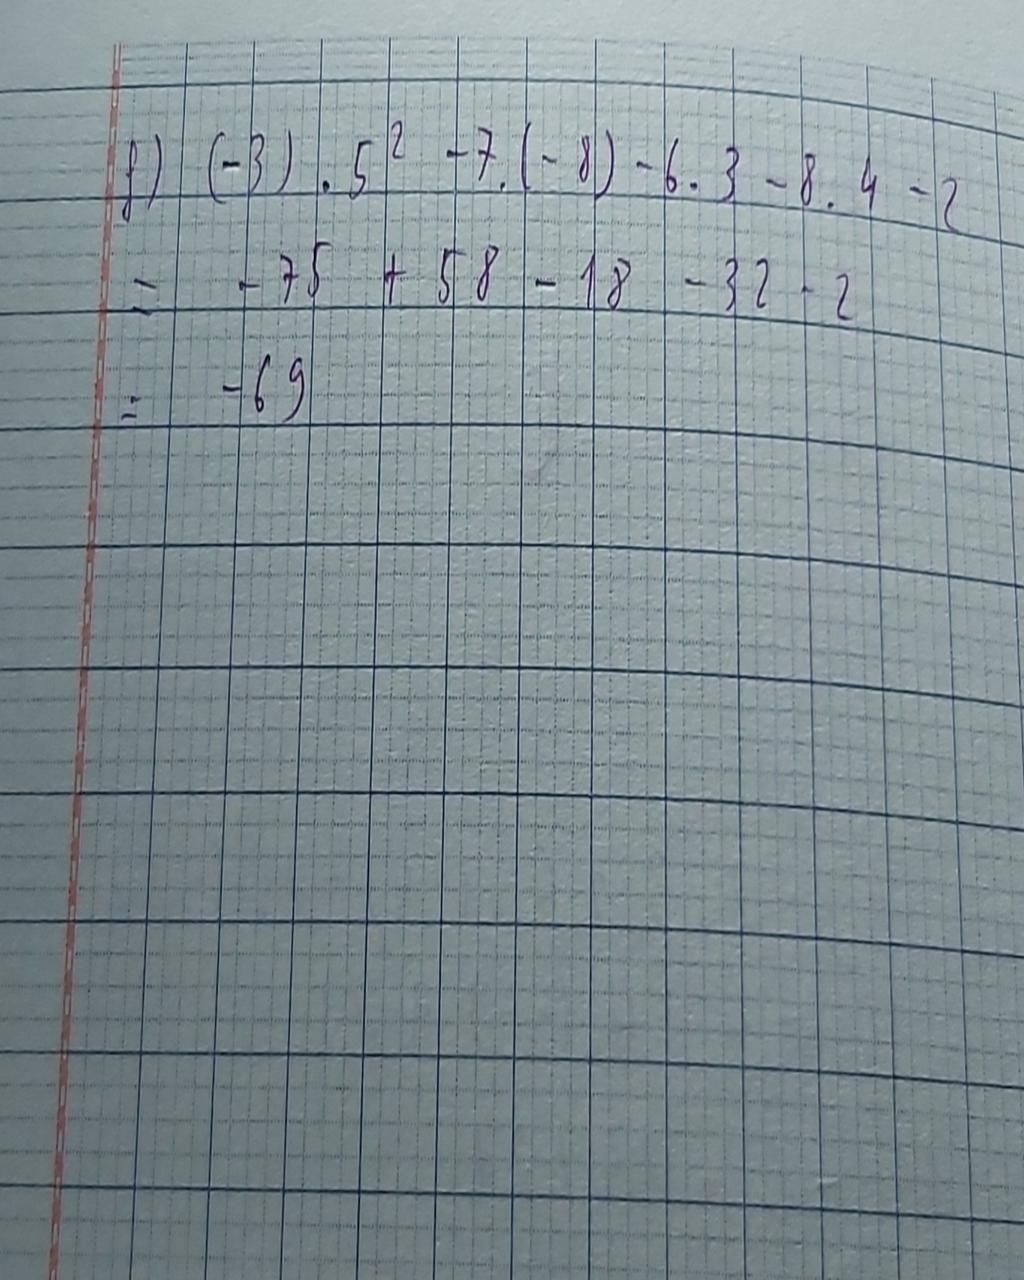 f) (-3) . 5² - 7 . (-8) - 6 . 3 - 8 . 4 - 2
= -75 + 58 - 18 - 32 - 2
= -69